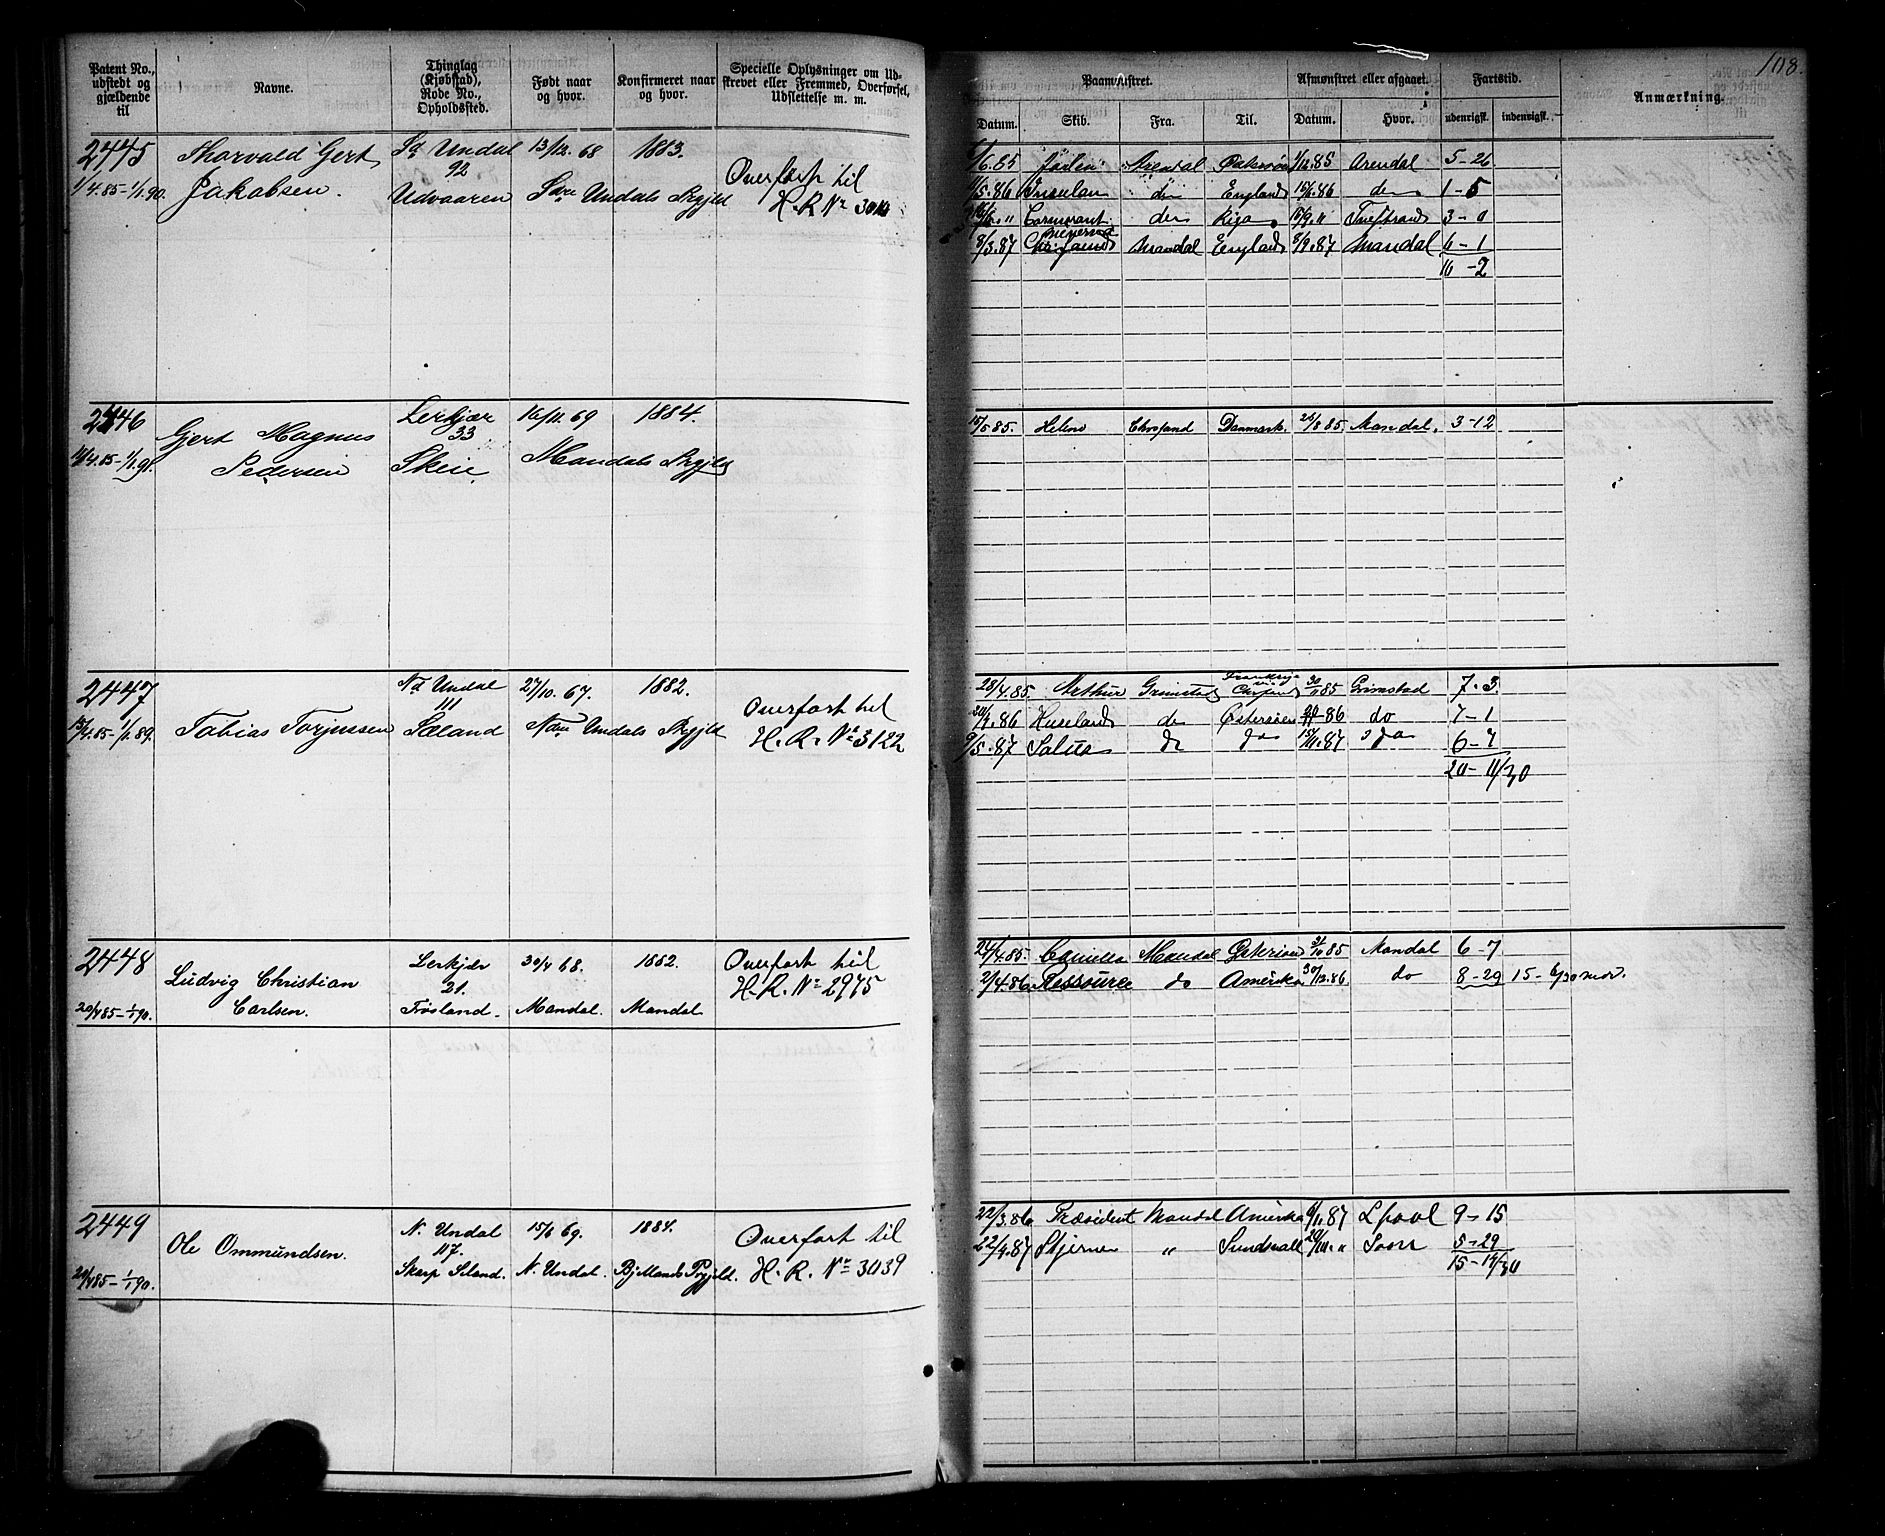 108.
Patent No., udstedt og gjældende til | Navne. | Thinglag (Kjøbstad), Rode No., Opholdssted. | Født naar og hvor. | Konfirmeret naar og hvor. | Specielle Oplysninger om Udstrevet eller Fremmed, Overførsel, Udslettelse m. m.
Paamønstret. | Afmønstret eller afgaaet. | Fartstid. | Anmærkning.
Datum. | Skib. | Fra. | Til. | Datum. | Hvor. | udenrigsk. | indenrigsk.
2445 | Thorvald Gert | Sd Undal | 13/12. 68 | 1883.
92 | Overført til
1/4.85-1/1.90. | Jakobsen. | Udvaaren | Søre Undals Prgjld | H. R. No
6.85 | Arendal | 1/12.85 | Arendal | 5-26
5.86 | do | England | 15/6.86 | do | 1-5
Cormorant | do | Riga | 3-0
8/3.87 | Mandal | England | 8/9.87 | Mandal | 6-1
16-2
2446 | Gjert Magnus | Lerkjær | 16/11. 69 | 1884.
33
14/4.85-1/1.91. | Pedersen | Skeie | Mandals Prgjld
15/5.85. | Helene | Chrsand | Danmark. | 26/8 85. | Mandal. | 3-12
2447 | Nd Undal | 27/10. 67. | 1882.
111 | Overført til
15/4.85-1/1.89. | Tobias Torjussen | Sæland | Ndre Undals Prgjld | H. R. No 3122
28/4.85. | Arthur | Grimstad | Frankrig via Chrsand | 30/11 85 | Grimstad | 7.3
20/4.86 | Huseland | do | Østersøen | 86 | do | 7-1
9/5.87 | Salus | do | do | 15/11.87 | do | 6-7
20-11/30
2448 | Ludvig Christian | Lerkjær | 30/4 68. | 1882. | Overført til
21. | H. R. No 2975
20/4 85-1/1 90. | Carlsen. | Frøsland. | Mandal. | Mandal
24/4.85. | Camilla | Mandal | Østersøen | 31/10 85 | Mandal | 6-7
2/4.86. | Ressource | do | Amerika | 30/12.86. | do | 8-29 | 15-6/30 mdr.
2449 | Ole Ommundsen. | N. Undal | 15/6 69. | 1884. | Overført til
117.
20/4 85-1/1 90. | Skarp Seland. | N. Undal. | Bjellands Prgjeld. | H. R. No 3039
22/3.86 | Præsident | Mandal | Amerika | 6/1.87 | Lpool | 9-15
22/4.87 | Stjernen | " | Sundsvall | 20/10. " | 5-29
15-14/30